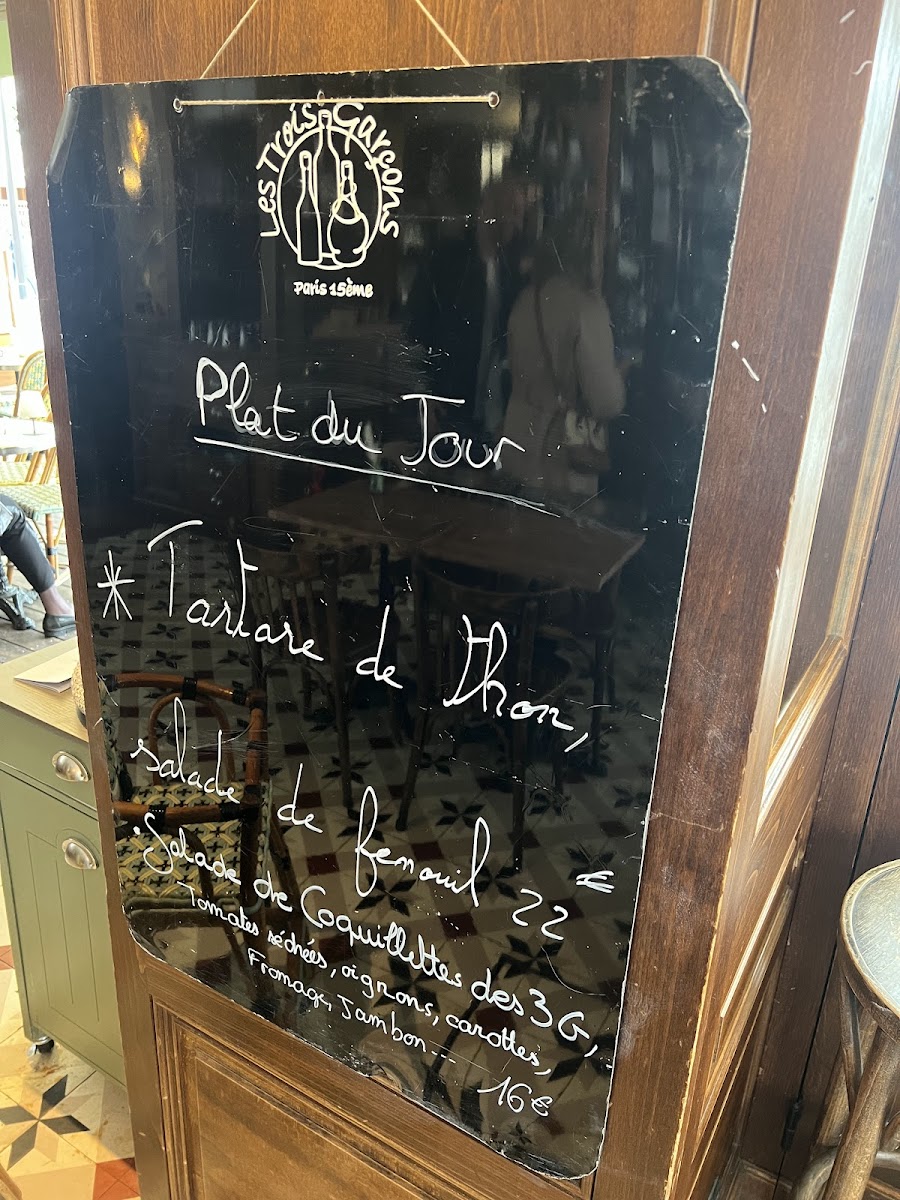 Les Trois Garçons
Paris 15ème
Plat du Jour
* Tartare de thon,
salade de fenouil 22 €
Salade de Coquillettes des 3G,
Tomates séchées, oignons, carottes,
Fromage, Jambon ---
16€